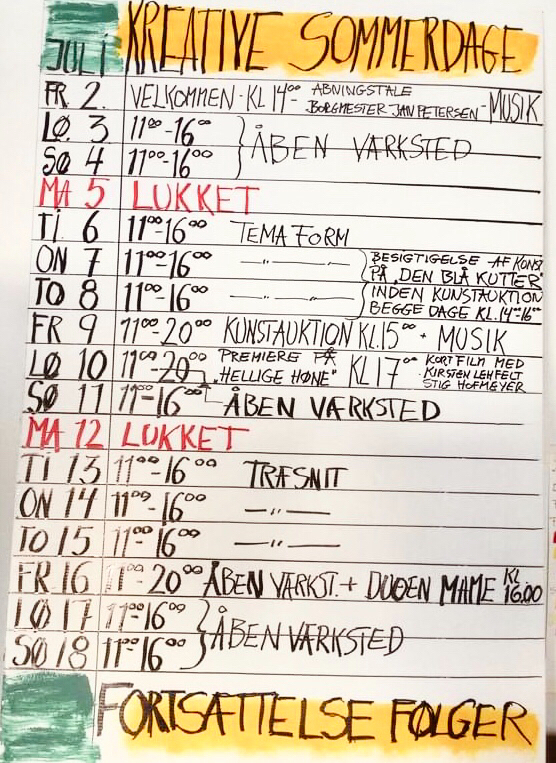 JULI KREATIVE SOMMERDAGE
FR 2. VELKOMMEN - KL 14⁰⁰ - ABNINGSTALE
BORGMESTER JAN PETERSEN - MUSIK
LØ 3 11⁰⁰-16⁰⁰
SØ 4 11⁰⁰-16⁰⁰ } ÅBEN VÆRKSTED
MA 5 LUKKET
TI 6 11⁰⁰-16⁰⁰ TEMA FORM
ON 7 11⁰⁰-16⁰⁰ — " — BESIGTIGELSE AF KUNST
PÅ "DEN BLÅ KUTTER"
TO 8 11⁰⁰-16⁰⁰ — " — INDEN KUNSTAUKTION
BEGGE DAGE KL. 14-16⁰⁰
FR 9 11⁰⁰-20⁰⁰ KUNSTAUKTION KL. 15⁰⁰ + MUSIK
LØ 10 11⁰⁰-20⁰⁰ PREMIERE PÅ
"HELLIGE HØNE" KL 17⁰⁰ KORTFILM MED
KIRSTEN LEHFELT
STIG HOFMEYER
SØ 11 11⁰⁰-16⁰⁰ ÅBEN VÆRKSTED
MA 12 LUKKET
TI 13 11⁰⁰-16⁰⁰ TRÆSNIT
ON 14 11⁰⁰-16⁰⁰ — " —
TO 15 11⁰⁰-16⁰⁰ — " —
FR 16 11⁰⁰-20⁰⁰ ÅBEN VÆRKST. + DUOEN MAME KL 16.00
LØ 17 11⁰⁰-16⁰⁰
SØ 18 11⁰⁰-16⁰⁰ } ÅBEN VÆRKSTED
FORTSÆTTELSE FØLGER